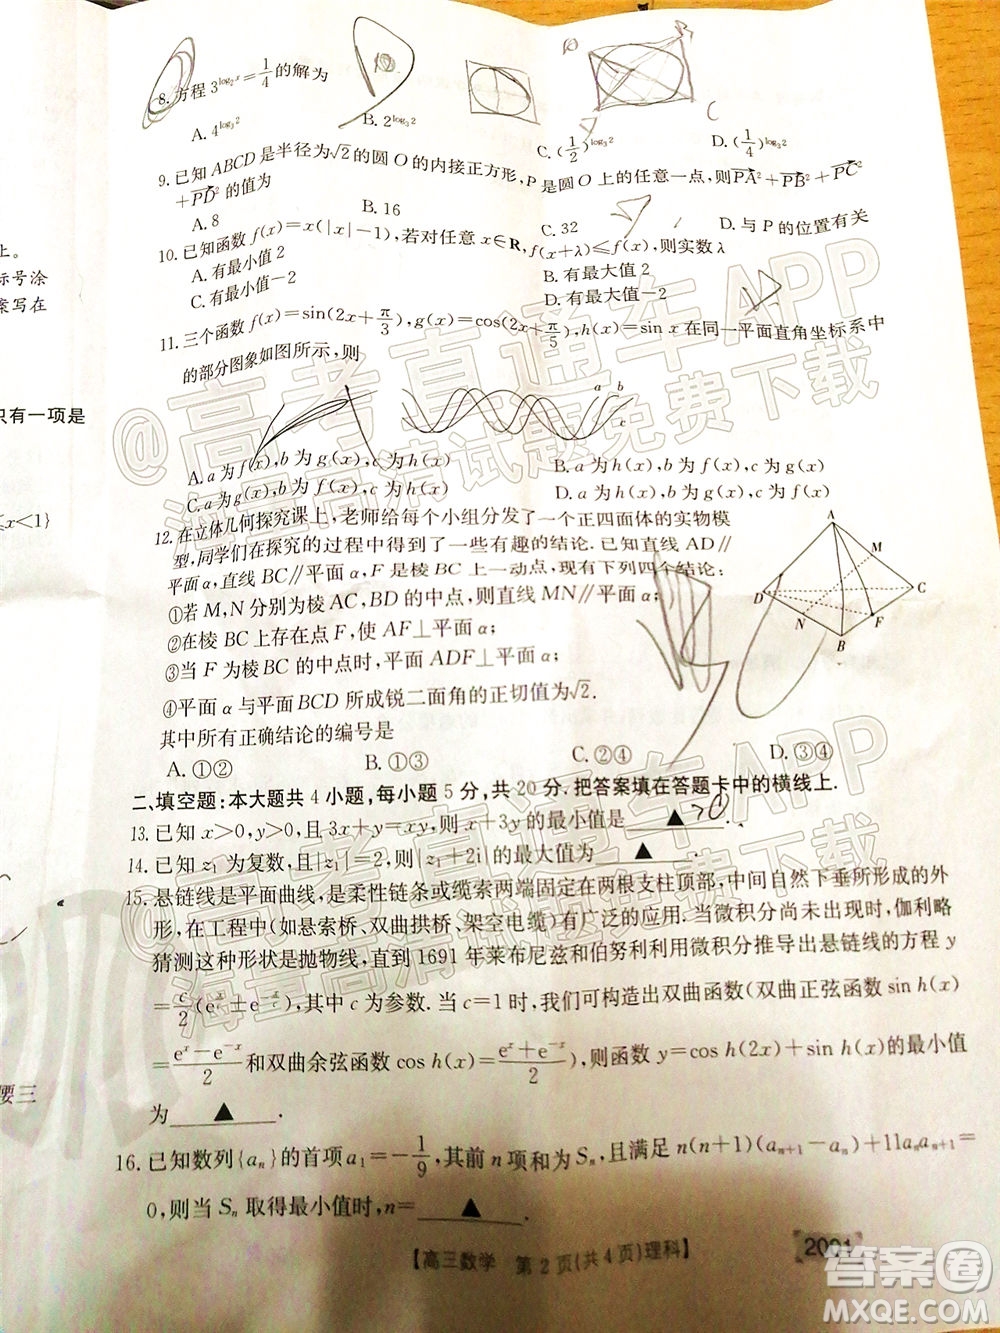 8. 方程 3^{log₂x} = 1/4 的解为
A. 4^{log₃2}
B. 2^{log₃2}
C. (1/2)^{log₃2}
D. (1/4)^{log₃2}
9. 已知 ABCD 是半径为√2的圆 O 的内接正方形, P 是圆 O 上的任意一点, 则PA²+PB²+PC²
+PD²的值为
A. 8
B. 16
C. 32
D. 与 P 的位置有关
10. 已知函数 f(x)=x(|x|-1), 若对任意 x∈R, f(x+λ)≤f(x), 则实数 λ
A. 有最小值 2
B. 有最大值 2
C. 有最小值-2
D. 有最大值-2
11. 三个函数 f(x)=sin(2x+π/3), g(x)=cos(2x+π/5), h(x)=sin x 在同一平面直角坐标系中
的部分图象如图所示, 则
a b
c
A. a 为 f(x), b 为 g(x), c 为 h(x)
B. a 为 h(x), b 为 f(x), c 为 g(x)
C. a 为 g(x), b 为 f(x), c 为 h(x)
D. a 为 h(x), b 为 g(x), c 为 f(x)
12. 在立体几何探究课上, 老师给每个小组分发了一个正四面体的实物模
型, 同学们在探究的过程中得到了一些有趣的结论. 已知直线 AD∥
平面 α, 直线 BC∥平面 α, F 是棱 BC 上一动点, 现有下列四个结论:
①若 M, N 分别为棱 AC, BD 的中点, 则直线 MN∥平面 α.
②在棱 BC 上存在点 F, 使 AF⊥平面 α.
③当 F 为棱 BC 的中点时, 平面 ADF⊥平面 α.
④平面 α 与平面 BCD 所成锐二面角的正切值为√2.
其中所有正确结论的编号是
A. ①②
B. ①③
C. ②④
D. ③④
A
M
D
C
N
F
B
二、填空题: 本大题共 4 小题, 每小题 5 分, 共 20 分. 把答案填在答题卡中的横线上.
13. 已知 x>0, y>0, 且 3x+y=xy, 则 x+3y 的最小值是 ▲ .
14. 已知 z₁ 为复数, 且|z₁|=2, 则|z₁+2i|的最大值为 ▲ .
15. 悬链线是平面曲线, 是柔性链条或缆索两端固定在两根支柱顶部, 中间自然下垂所形成的外
形, 在工程中(如悬索桥、双曲拱桥、架空电缆)有广泛的应用. 当微积分尚未出现时, 伽利略
猜测这种形状是抛物线, 直到 1691 年莱布尼兹和伯努利利用微积分推导出悬链线的方程 y
=c/2(e^{x/c}+e^{-x/c}), 其中 c 为参数. 当 c=1 时, 我们可构造出双曲函数(双曲正弦函数 sin h(x)
=(e^x-e^{-x})/2 和双曲余弦函数 cos h(x)=(e^x+e^{-x})/2), 则函数 y=cos h(2x)+sin h(x)的最小值
为 ▲ .
16. 已知数列{aₙ}的首项 a₁=-1/9, 其前 n 项和为 Sₙ, 且满足 n(n+1)(aₙ₊₁-aₙ)+11aₙaₙ₊₁=
0, 则当 Sₙ 取得最小值时, n= ▲ .
【高三数学 第 2 页(共 4 页)理科】
2091
上.
示号涂
案写在
只有一项是
x<1}
腰三
@高考直通车APP
海量高清试题免费下载
@高考直通车APP
海量高清试题免费下载
答案卷
MXQE.COM